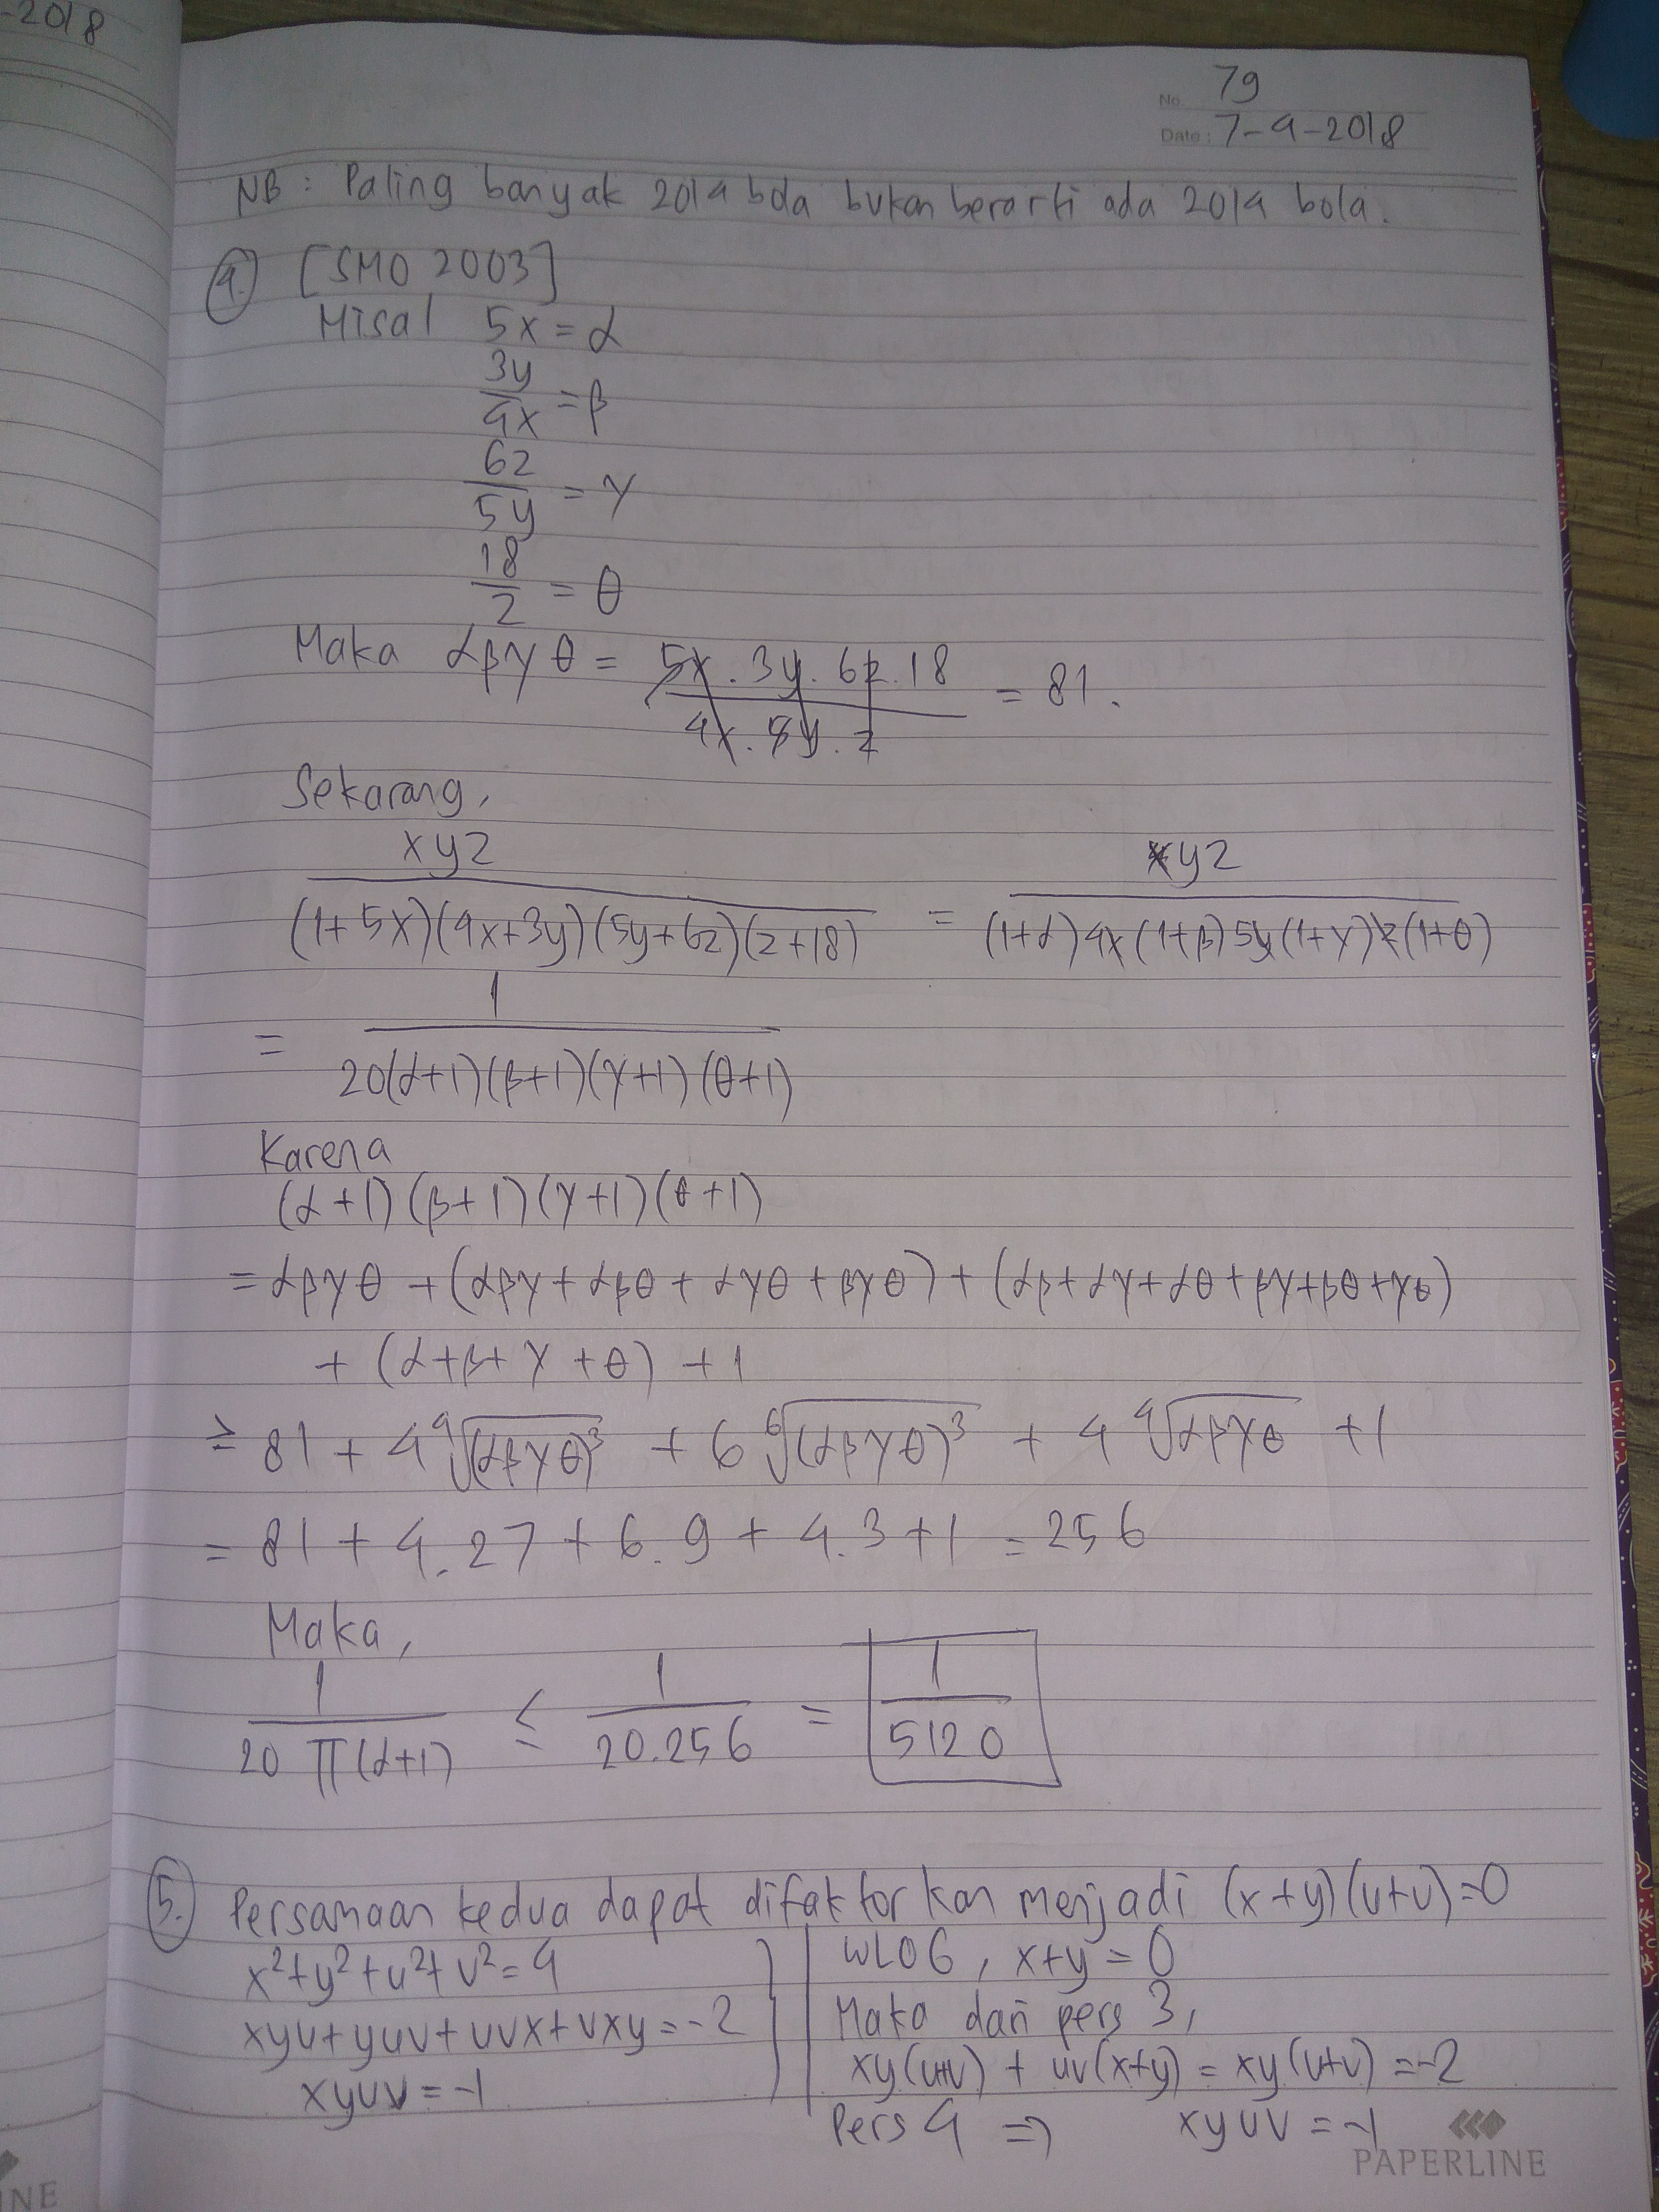 -2018
No. 79
Date: 7-4-2018
NB: Paling banyak 2014 bola bukan berarti ada 2014 bola.
4. [SMO 2003]
Misal 5x = α
3y/4x = β
6z/5y = γ
18/z = θ
Maka αβγθ = (5x . 3y . 6z . 18)/(4x . 5y . z) = 81.
Sekarang,
xyz/((1+5x)(4x+3y)(5y+6z)(z+18)) = xyz/((1+α)4x(1+β)5y(1+γ)z(1+θ))
= 1/(20(α+1)(β+1)(γ+1)(θ+1))
Karena
(α+1)(β+1)(γ+1)(θ+1)
= αβγθ + (αβγ + αβθ + αγθ + βγθ) + (αβ+αγ+αθ+βγ+βθ+γθ)
+ (α+β+γ+θ) + 1
≥ 81 + 4 ⁴√(αβγθ)³ + 6 ⁶√(αβγθ)³ + 4 ⁴√αβγθ + 1
= 81 + 4.27 + 6.9 + 4.3 + 1 = 256
Maka,
1/(20 Π(α+1)) ≤ 1/(20.256) = 1/5120
5. Persamaan kedua dapat difaktorkan menjadi (x+y)(u+v)=0
x²+y²+u²+v²=4
xyu+yuv+uvx+vxy=-2
xyuv=-1
WLOG, x+y=0
Maka dari pers 3,
xy(u+v) + uv(x+y) = xy(u+v) = -2
Pers 4 ⇒ xyuv = -1
PAPERLINE
INE